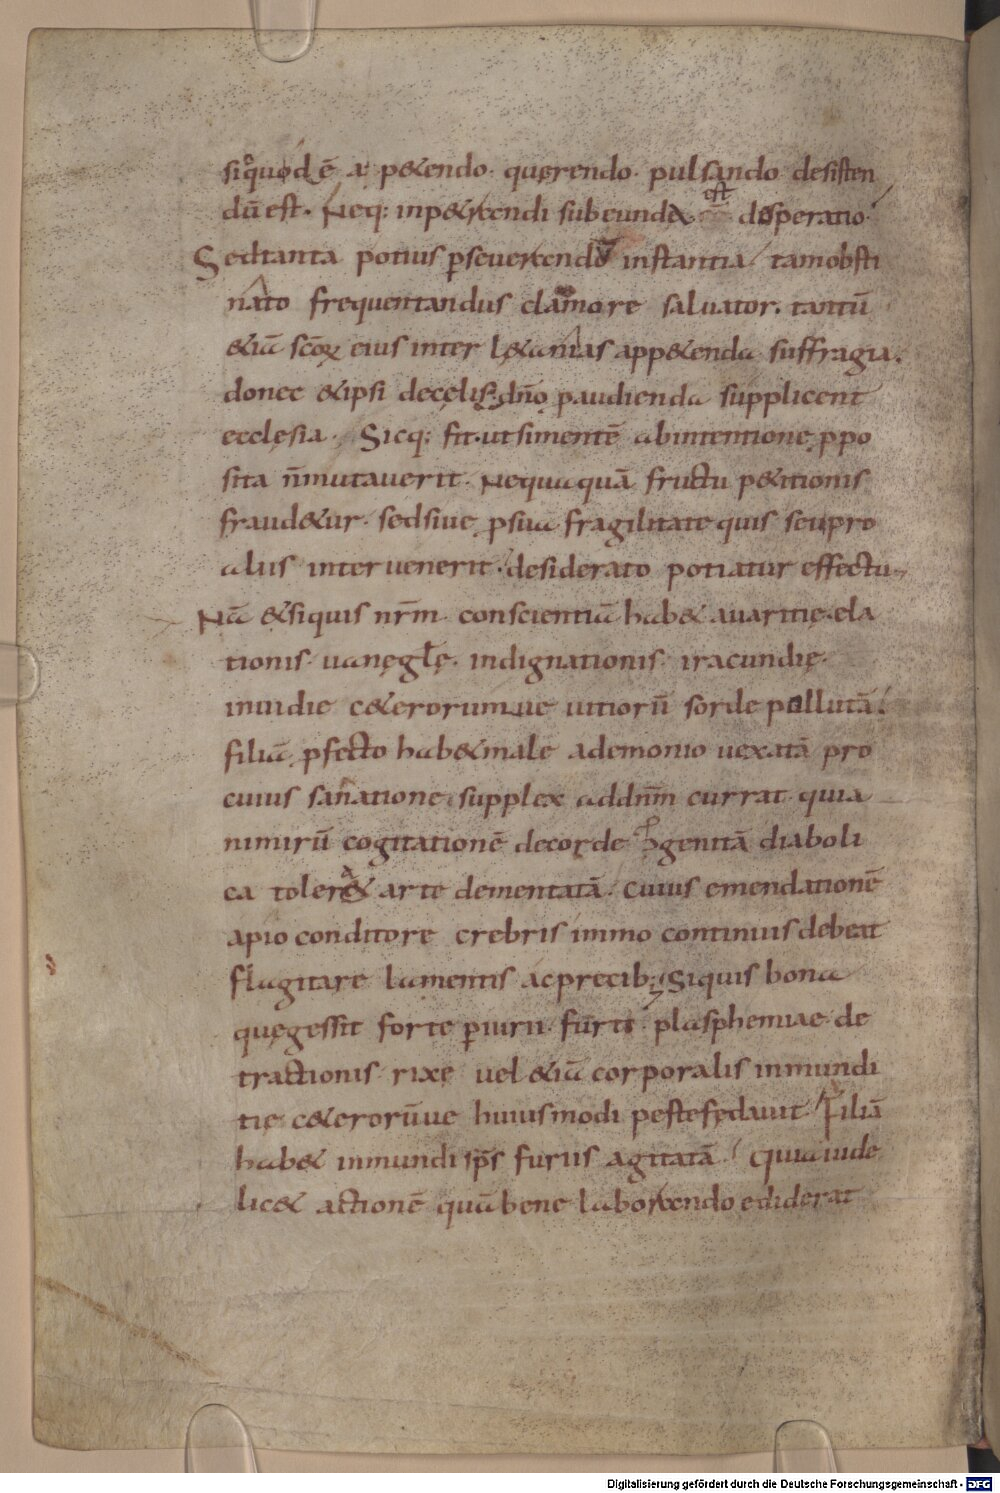 siquod ē a p&endo. querendo. pulsando desisten
dū est. Neq: inp&rtendi subeunda est disperatio.
Sed tanta potius pseuerendo instantia tam obsti
nato frequentandus clamore saluator. tantū
&iā scōꝝ eius inter l&anias app&enda suffragia.
donec &ipsi decęlis dnō paudienda supplicent
ecclesia. Sicq: fit. ut simentē abintentione ppo
sita n̄mutauerit. Nequaquā fructu p&itionis
fraud&ur. sedsiue psua fragilitate quis seupro
aliis interuenerit. desiderato potiatur effectu.
Nā &siquis nrm̄ conscientiā hab& auaritię. ela
tionis. uanęglę. indignationis. iracundię.
inuidie c&erorumue uitiorū sorde pollutā.
filiā pfecto hab& male ademonio uexatā pro
cuius sanatione supplex addnm̄ currat. quia
nimirū cogitationē decorde genitā diaboli
ca toler& arte dementatā. cuius emendationē
apio conditore crebris immo continuis debeat
flagitare lamentis ac precib: Siquis bona
quęgessit forte piurii. furti. plasphemiae. de
tractionis. rixę uel &iā corporalis inmundi
tię c&erorūue huiusmodi peste fędauit. Filiā
hab& inmundi sps̄ furiis agitatā. Quia uide
lic& actionē quā bene laborando ediderat
Digitalisierung gefördert durch die Deutsche Forschungsgemeinschaft - DFG